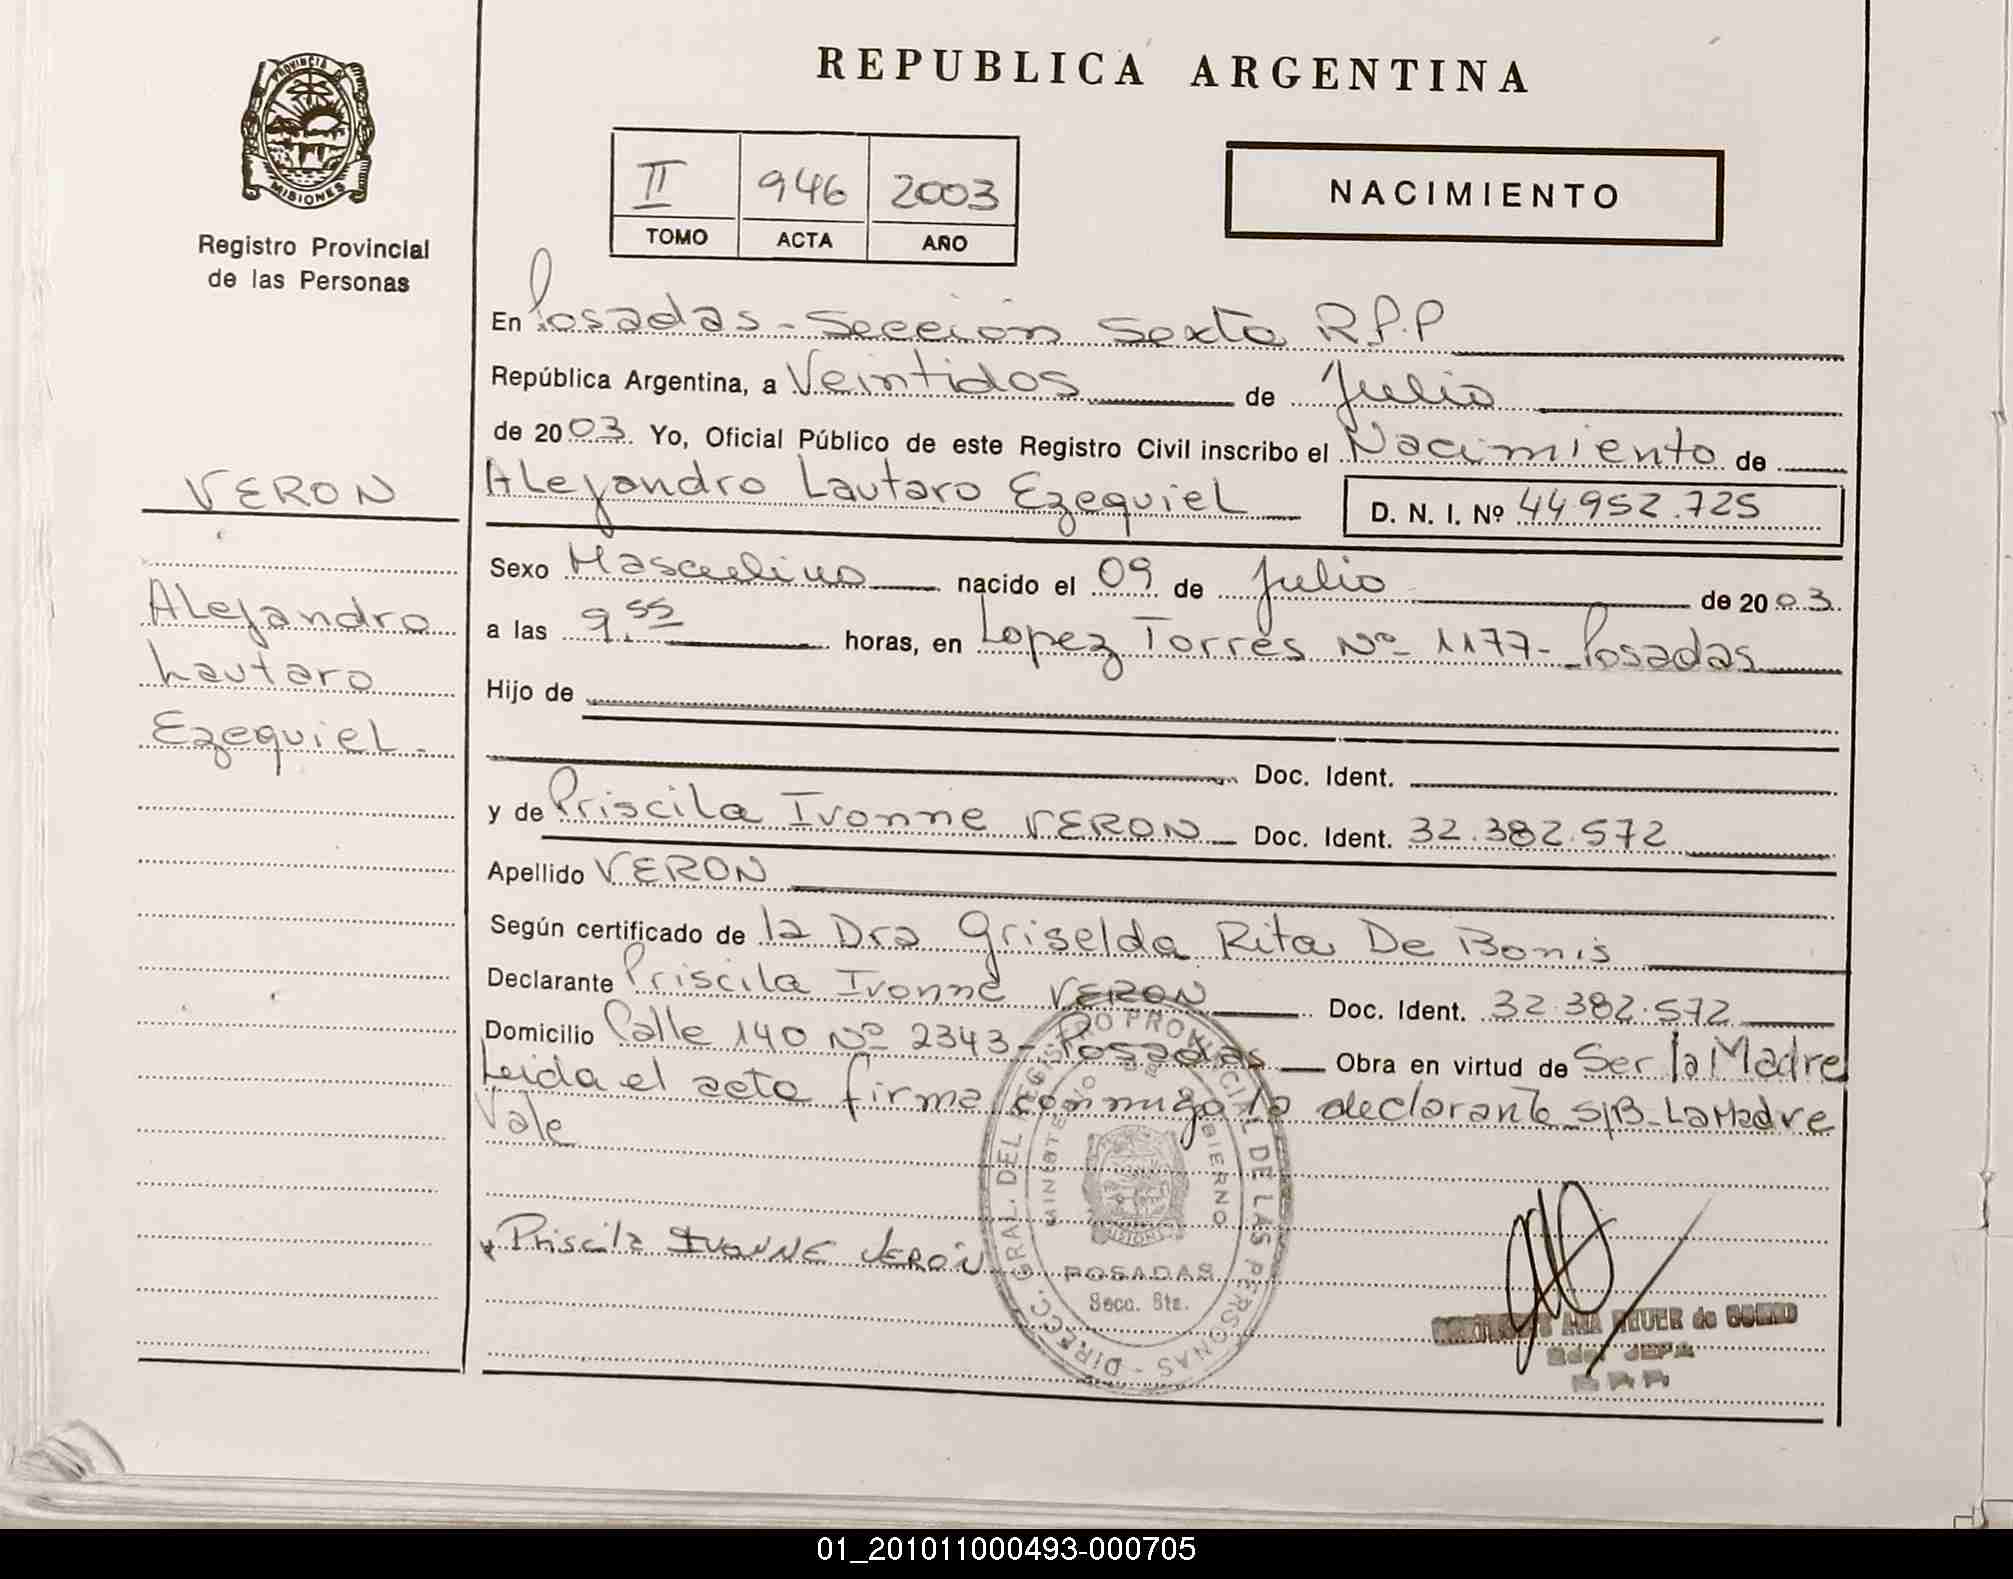 PROVINCIA DE
MISIONES
Registro Provincial
de las Personas
REPUBLICA ARGENTINA
II 946 2003
TOMO ACTA AÑO
NACIMIENTO
VERON
Alejandro
Lautaro
Ezequiel.
En Posadas - Sección Sexta R.P.P
República Argentina, a Veintidos de Julio
de 2003. Yo, Oficial Público de este Registro Civil inscribo el Nacimiento de
Alejandro Lautaro Ezequiel D. N. I. Nº 44.952.725
Sexo Masculino nacido el 09 de Julio de 2003.
a las 9.55 horas, en Lopez Torres Nº 1177 - Posadas
Hijo de
Doc. Ident.
y de Priscila Ivonne VERON Doc. Ident. 32.382.572
Apellido VERON
Según certificado de la Dra Griselda Rita De Bonis
Declarante Priscila Ivonne VERON Doc. Ident. 32.382.572
Domicilio Calle 140 Nº 2343 - Posadas Obra en virtud de Ser la Madre
Leida el acta firma conmigo la declarante S/B - La Madre
Vale
Priscila IVONNE VERON
DIRECC. GRAL. DEL REGISTRO PROVINCIAL DE LAS PERSONAS
MINISTERIO DE GOBIERNO
MISIONES
POSADAS
Secc. 6ta.
ANA NEUER de
JEFA
01_201011000493-000705